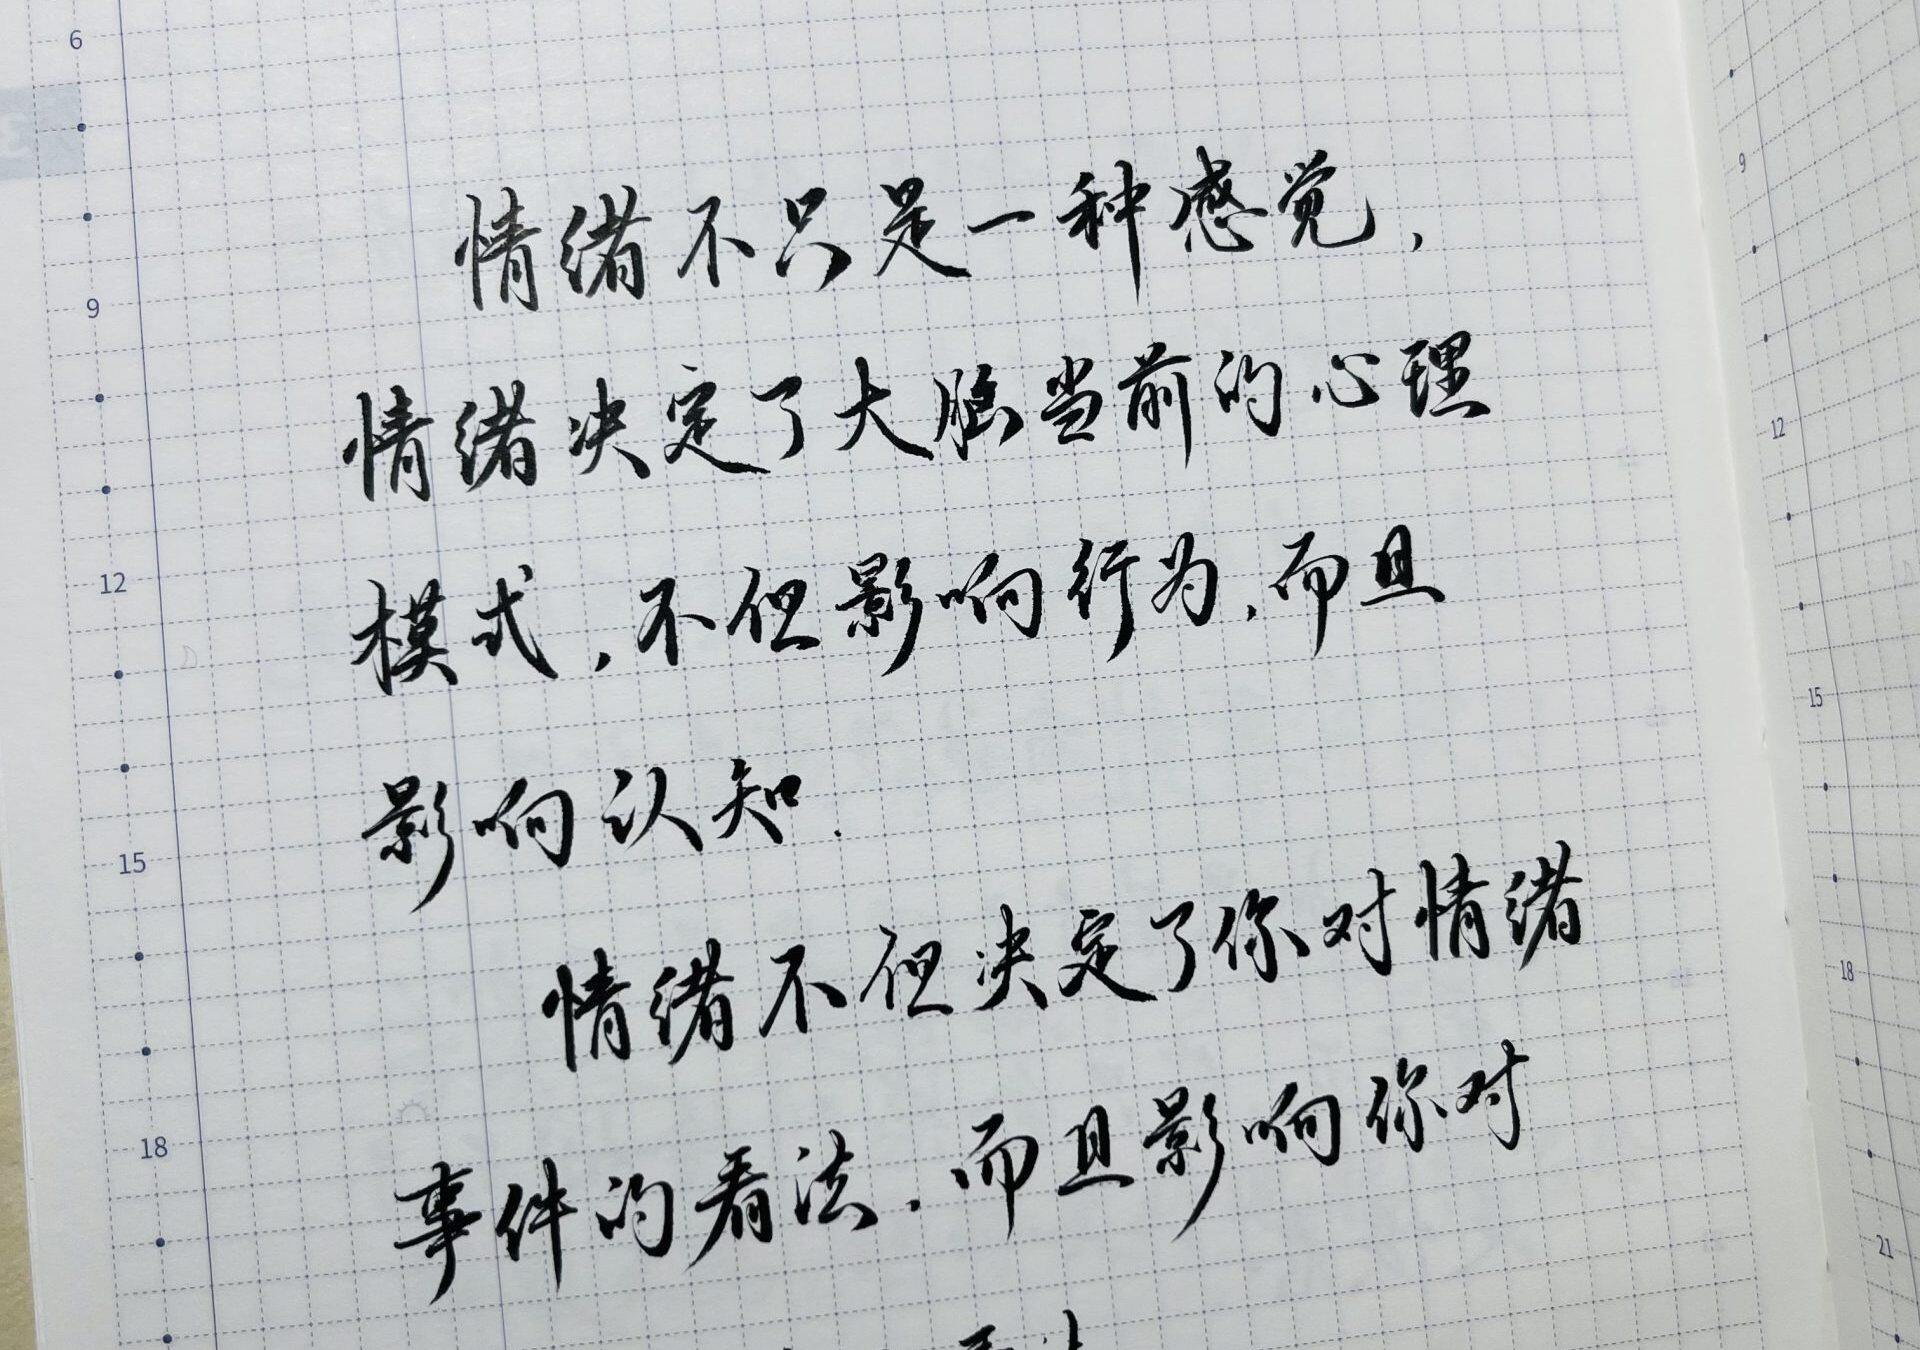 6
9
12
15
18
情绪不只是一种感觉，
情绪决定了大脑当前的心理
模式，不但影响行为，而且
影响认知.
情绪不但决定了你对情绪
事件的看法，而且影响你对
9
12
15
18
21